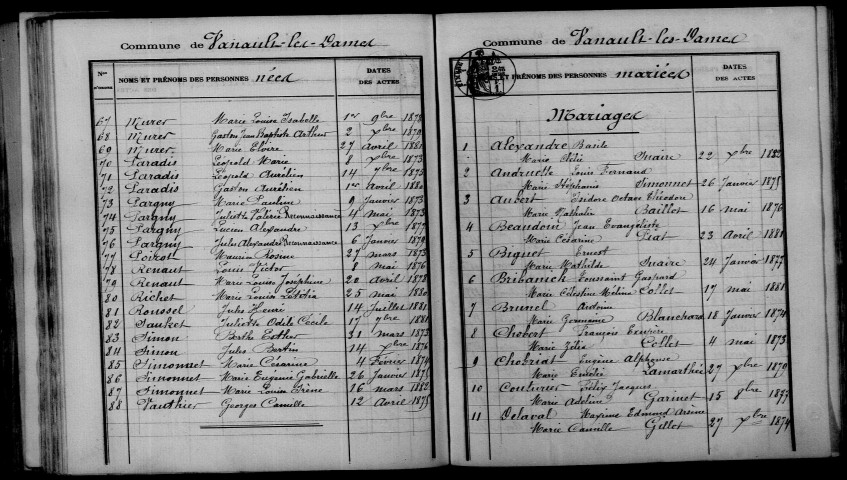 Commune de Vanault-les-Dames
Nos D'ORDRE NOMS ET PRÉNOMS DES PERSONNES nées DATES DES ACTES
67 Murer Marie Louise Isabelle 1er 9bre 1878
68 Murer Gaston Jean Baptiste Arthur 2 Xbre 1879
69 Murer Marie Elvire 27 avril 1881
70 Paradis Léopold Marie 8 Xbre 1873
71 Paradis Léopold Aurélien 14 7bre 1875
72 Paradis Gaston Aurélien 1er Avril 1880
73 Pargny Marie Pauline 9 Janvier 1873
74 Pargny Juliette Valérie Reconnaissance 4 mai 1873
75 Pargny Lucien Alexandre 13 Xbre 1877
76 Pargny Jules Alexandre Reconnaissance 6 Janvier 1879
77 Poirot Maurice Rosine 27 mars 1873
78 Renaut Louis Victor 8 mai 1876
79 Renaut Marie Louise Joséphine 20 Avril 1878
80 Richet Marie Louise Létitia 25 mai 1880
81 Roussel Jules Henri 14 Juillet 1881
82 Juliette Odile Cécile 17 7bre 1881
83 Simon Berthe Esther 31 mars 1873
84 Simon Jules Bertin 14 Xbre 1876
85 Simonnet Marie Césarine 4 Février 1874
86 Simonnet Marie Eugénie Gabrielle 26 Janvier 1875
87 Simonnet Marie Louise Irène 16 mars 1882
88 Vauthier Georges Camille 12 Avril 1875
Commune de Vanault-les-Dames
NOMS ET PRÉNOMS DES PERSONNES mariées DATES DES ACTES
Mariages
1 Alexandre Basile
Marie Clélie 22 Xbre 1882
2 Andruette Louis Fernand
Marie Stéphanie Simonnet 26 Janvier 1875
3 Aubert Isidore Octave Théodore
Marie Nathalie Baillot 16 mai 1876
4 Beaudoin Jean Evangéliste
Marie Césarine Piat 23 Avril 1881
5 Biguet Ernest
Marie Mathilde 24 Janvier 1877
6 Toussaint Gaspard
Marie Célestine Mélina Collet 17 mai 1881
7 Brunel
Marie Germaine Blanchard 18 Janvier 1874
8 Chobert François Exupère
Marie Zélia Collet 4 mai 1873
9 Chobriat Eugène Alphonse
Marie Lamarthée 27 Xbre 1879
10 Couturier Félix Jacques
Marie Adeline Garinet 15 8bre 1877
11 Delaval Maxime Edmond Arsène
Marie Camille Gillet 27 Xbre 1874